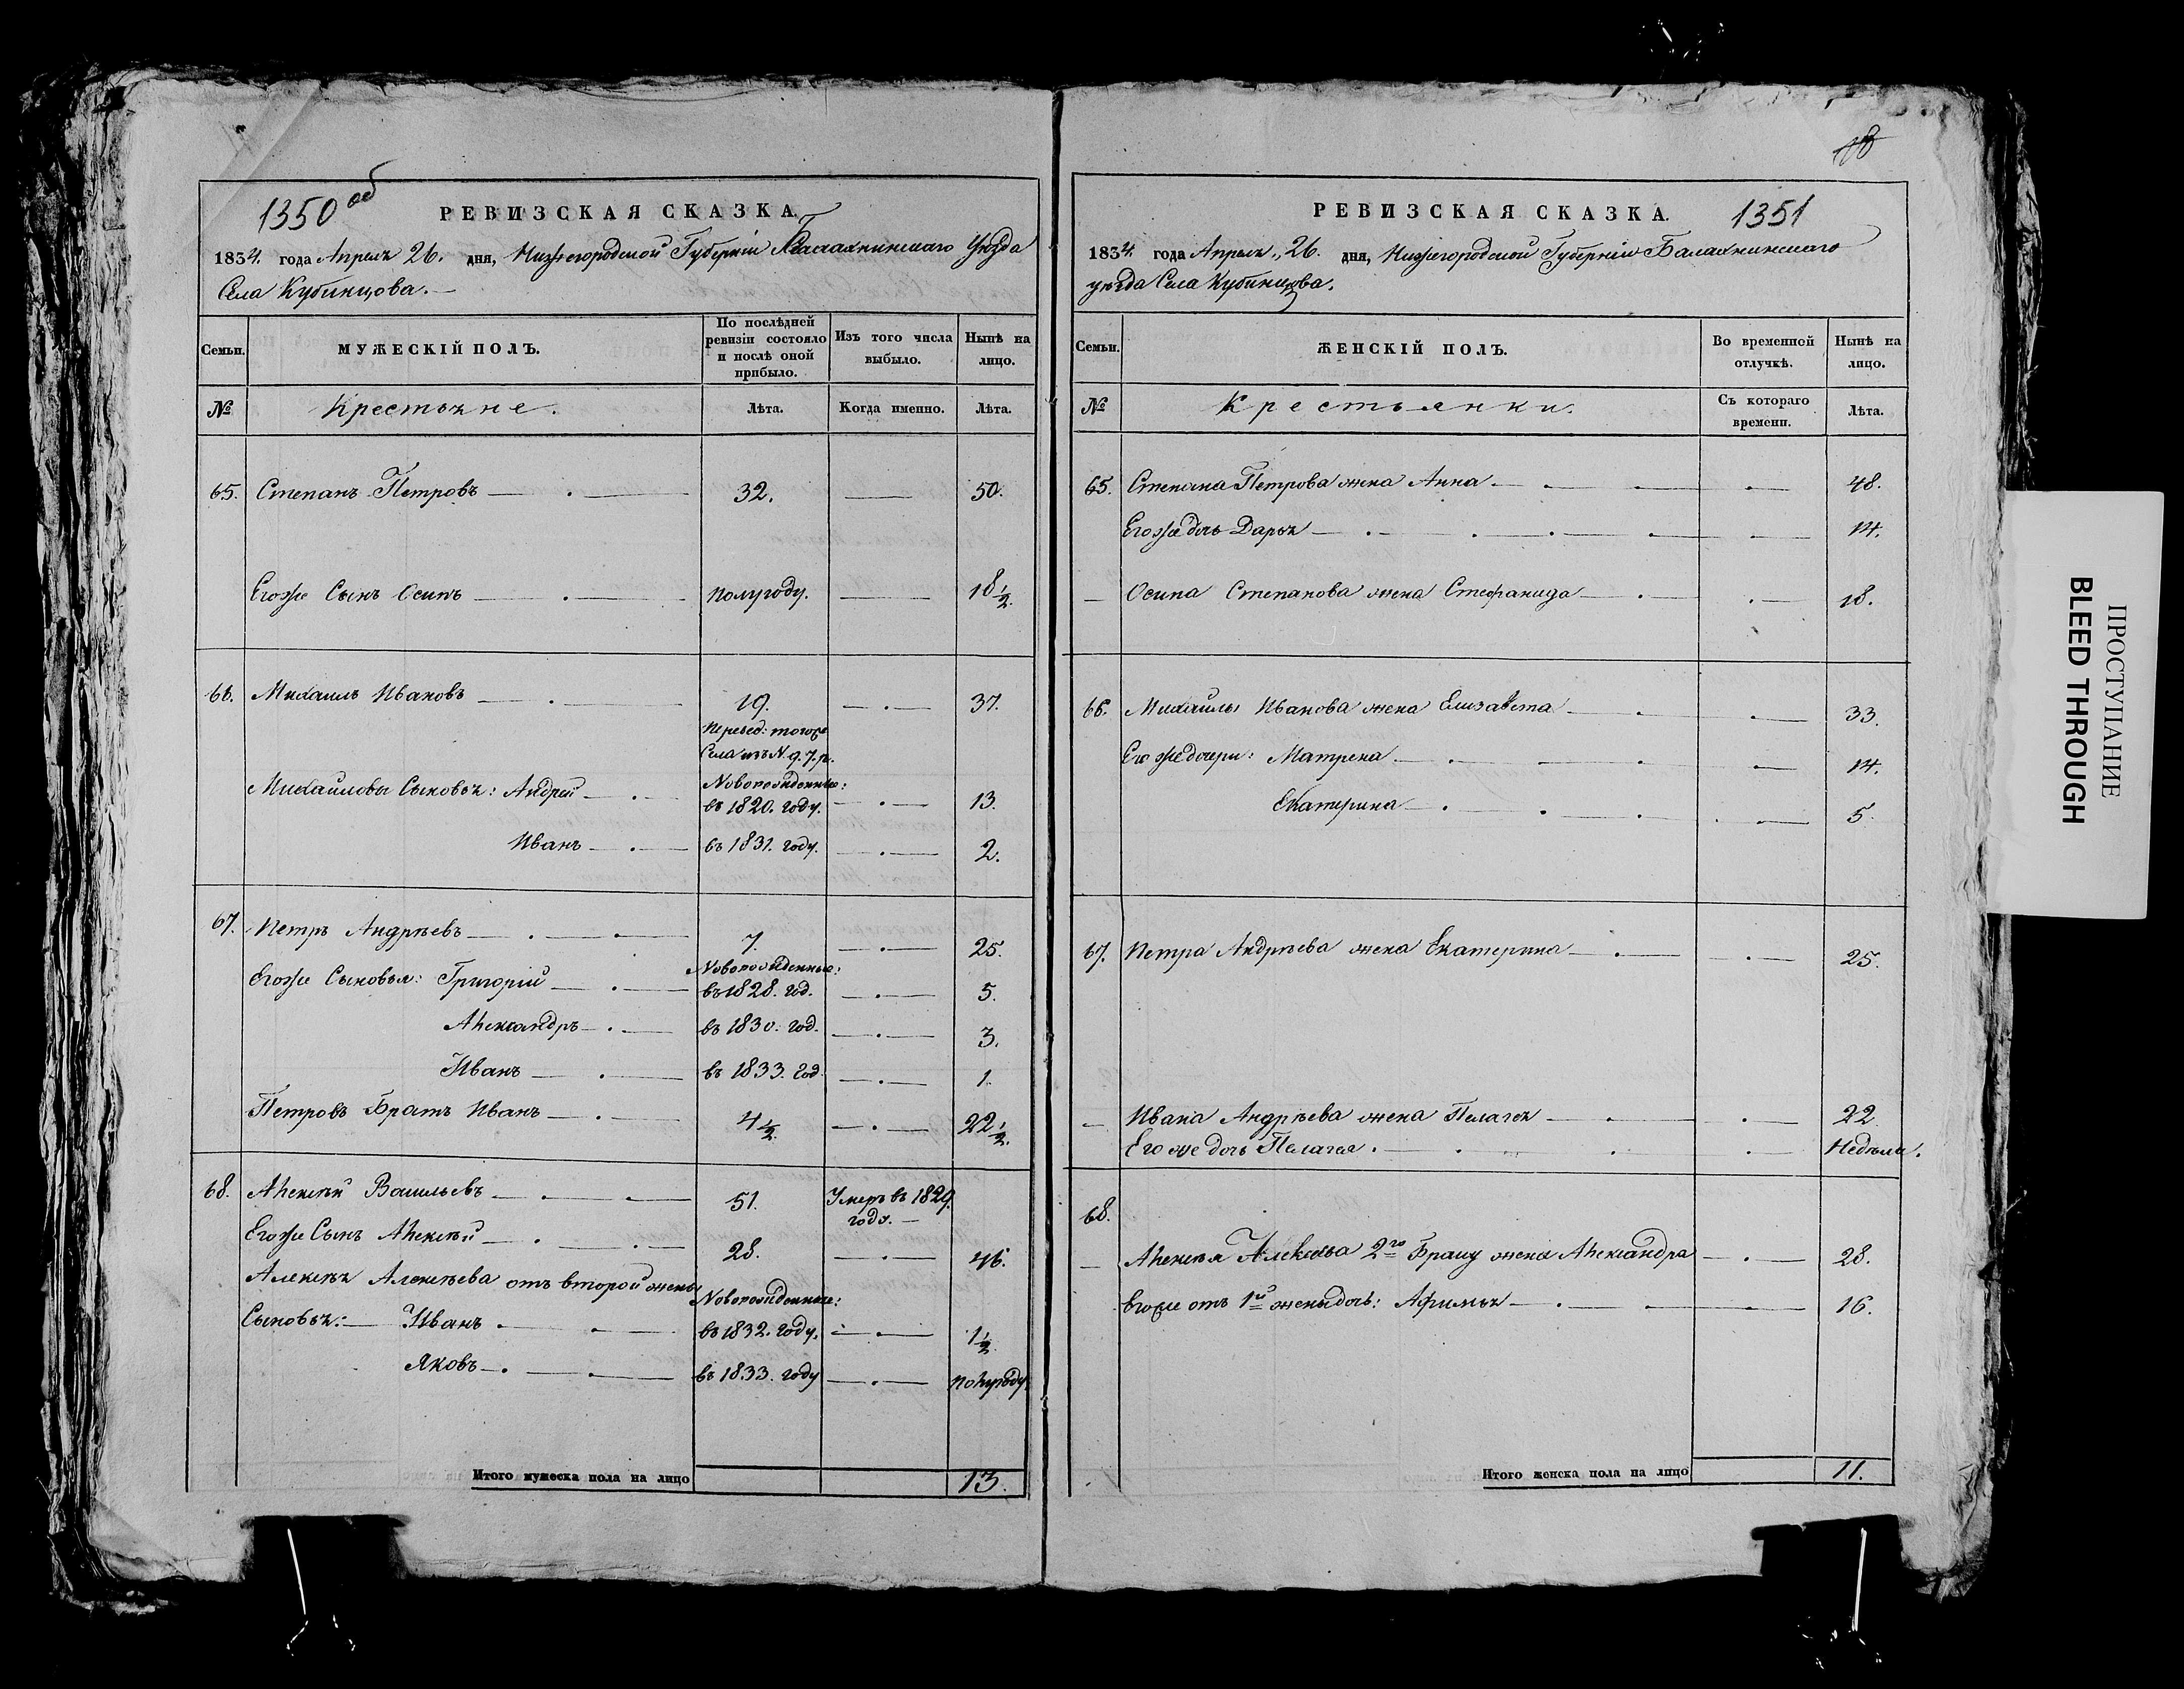 1350 об
РЕВИЗСКАЯ СКАЗКА.
1834. года Апреля 26. дня, Нижегородской Губерніи Балахнинскаго Уѣзда
Села Кубинцова.
Семьи.
МУЖЕСКІЙ ПОЛЪ.
По послѣдней ревизіи состояло и послѣ оной прибыло.
Изъ того числа выбыло.
Нынѣ на лицо.
№
Крестьяне.
Лѣта.
Когда именно.
Лѣта.
65. Степанъ Петровъ 32. 50.
Егоже Сынъ Осипъ полугоду. 18 1/2.
66. Михаилъ Ивановъ 19. 37.
Перевед: тогоже
Села изъ N. 9. 7. р.
Новорожденные:
Михаиловы Сыновья: Андрей въ 1820. году. 13.
Иванъ въ 1831. году. 2.
67. Петръ Андрѣевъ 7. 25.
Новорожденные:
Егоже Сыновья: Григорій въ 1828. год. 5.
Александръ въ 1830. год. 3.
Иванъ въ 1833. год. 1.
Петровъ Братъ Иванъ 4 1/2. 22 1/2.
68. Алексѣй Васильевъ 51. Умеръ въ 1829.
году.
Егоже Сынъ Алексѣй 28. 46.
Алексѣя Алексѣева отъ второй жены
Новорожденные:
Сыновья: Иванъ въ 1832. году. 1 1/2.
Яковъ въ 1833. году полугоду.
Итого мужеска пола на лицо 13.
18
РЕВИЗСКАЯ СКАЗКА. 1351
1834. года Апреля 26. дня, Нижегородской Губерніи Балахнинскаго
уѣзда Села Кубинцова.
Семьи.
ЖЕНСКІЙ ПОЛЪ.
Во временной отлучкѣ.
Нынѣ на лицо.
№
Крестьянки.
Съ котораго времени.
Лѣта.
65. Степана Петрова жена Анна 48.
Егоже дочь Дарья 14.
Осипа Степанова жена Стефанида 18.
66. Михаилы Иванова жена Елизавета 33.
Его же дочери: Матрена 14.
Екатерина 5.
67. Петра Андрѣева жена Екатерина 25.
Ивана Андрѣева жена Пелагея 22
Его же дочь Пелагея. Недѣли.
68.
Алексѣя Алексѣева 2го Браку жена Александра 28.
Егоже отъ 1й жены дочь: Афимья 16.
Итого женска пола на лицо 11.
ПРОСТУПАНИЕ
BLEED THROUGH